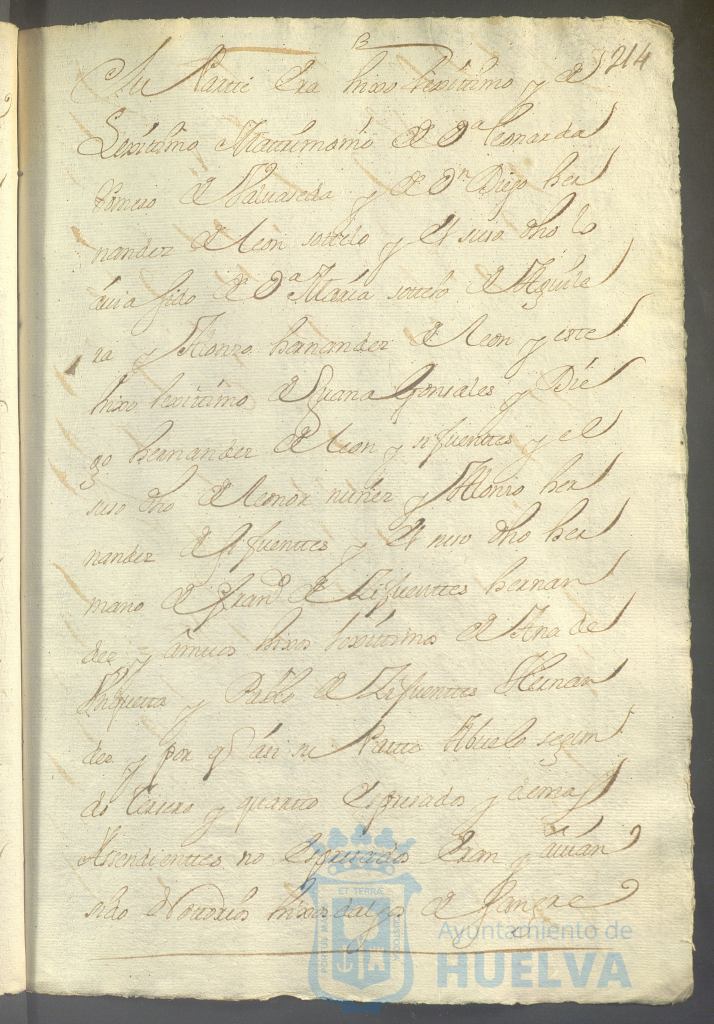 214
Su Parte Era hixo lexittimo y de
Lexittimo Mattrimonio de Dª Leonarda
Romero de Valvaseda y de Dn Diego her
nandez de Leon sottelo y el suso dho lo
avia sido de Dª Maria sottelo de Aguile
ra y Alonzo hernandez de Leon y este
hixo lexittimo de Juana Gonsales y Die
go hernandez de Leon y sifuenttes y el
suso dho de Leonor nuñez y Alonso her
nandez de sifuenttes y el suso dho her
mano de Frand. de Zifuenttes hernan
dez y amvos hixos lexittimos de Ana de
y Pablo de Zifuenttes Hernan
dez y por q asi su Partte Abuelo segun
do tersero y quartto Espresado y demas
Assendienttes no Espresados Eran y avian
sido Nottorios hixosdalgo de Sangre
PORTUS MARIS ET TERRÆ CUSTODIA
Ayuntamiento de
HUELVA